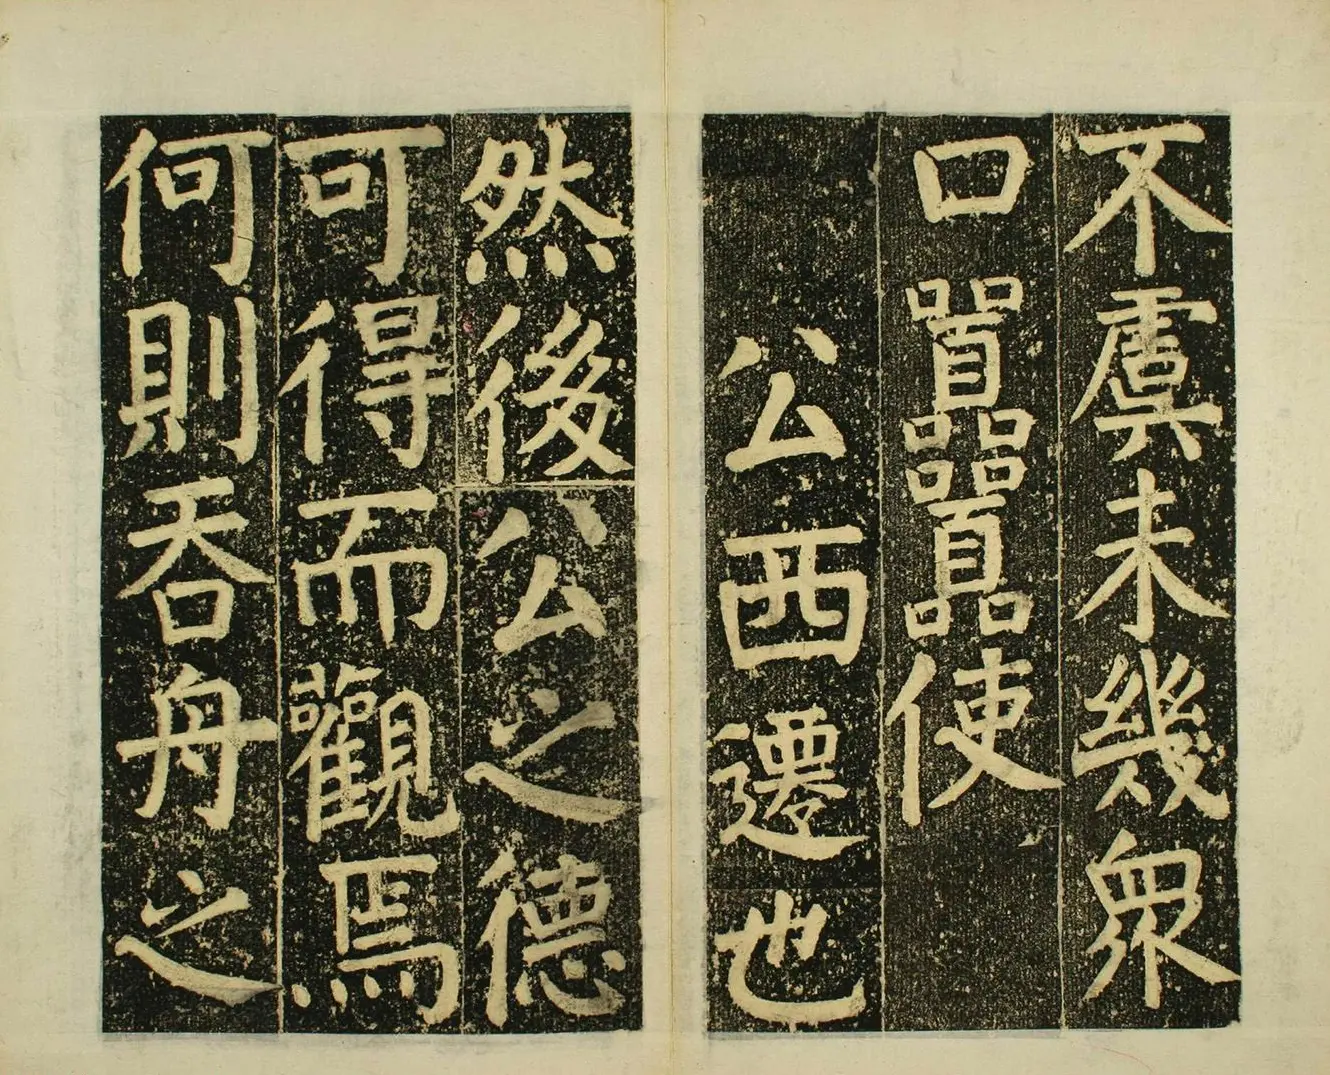 不虞未幾衆
口囂囂使
公西遷也
然後公之德
可得而觀焉
何則吞舟之